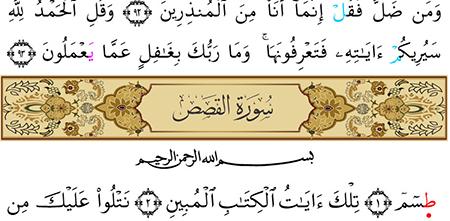 وَمَن ضَلَّ فَقُلْ إِنَّمَآ أَنَا۠ مِنَ ٱلْمُنذِرِينَ ٩٢ وَقُلِ ٱلْحَمْدُ لِلَّهِ
سَيُرِيكُمْ ءَايَٰتِهِۦ فَتَعْرِفُونَهَا ۚ وَمَا رَبُّكَ بِغَٰفِلٍ عَمَّا يَعْمَلُونَ ٩٣
سُورَةُ القَصَصِ
بِسْمِ اللَّهِ الرَّحْمَٰنِ الرَّحِيمِ
طسٓمٓ ١ تِلْكَ ءَايَٰتُ ٱلْكِتَٰبِ ٱلْمُبِينِ ٢ نَتْلُوا۟ عَلَيْكَ مِن